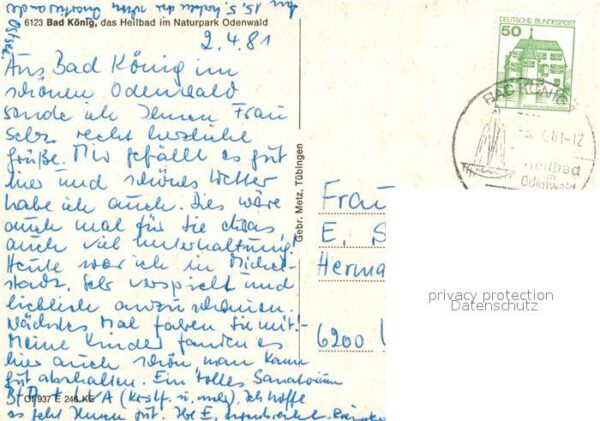 am 15. 5. haben die
Ostsee
6123 Bad König, das Heilbad im Naturpark Odenwald
2.4.81
Aus Bad König im
schönen Odenwald
sende ich Ihnen Frau
recht herzliche
Grüße. Mir gefällt es gut
hier und schönes Wetter
habe ich auch. Dies wäre
auch mal für Sie etwas
auch viel Unterhaltung!
Heute war ich in Michel-
stadt. Sehr verspielt und
lieblich anzuschauen.
Nächstes Mal fahren Sie mit!-
Meine Kinder fanden es
hier auch schön man kann
gut abschalten. Ein tolles Sanatorium
BfA (Kostf. u. mehr). Ich hoffe
es geht Ihnen gut. Ihre E.
01 937 E 246 KE
Gebr. Metz, Tübingen
DEUTSCHE BUNDESPOST
50
BAD KÖNIG
81-12
Heilbad
Odenwald
Frau
E. S
Herma
6200
privacy protection
Datenschutz